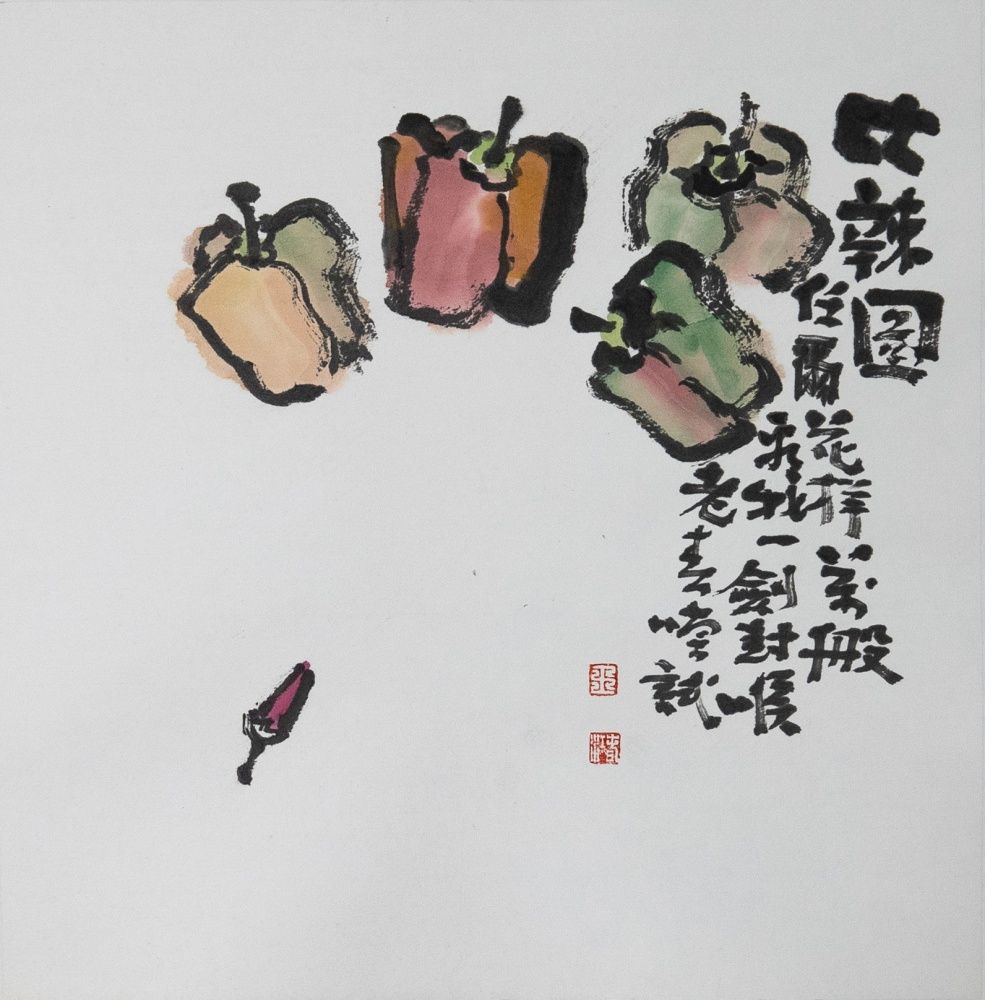 比辣圖
任爾花样萬般
看我一劍封喉
老去嘗試